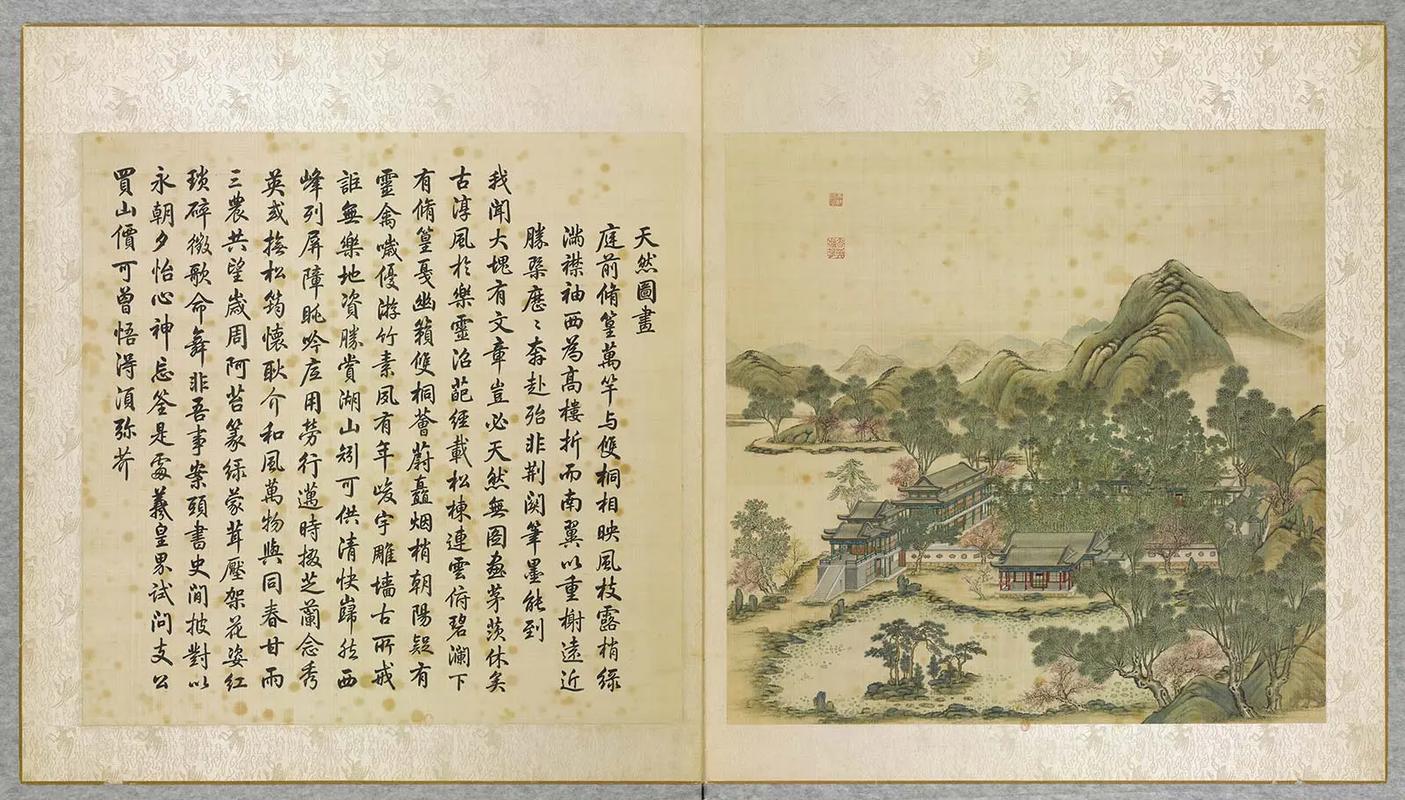 天然圖畫
庭前脩篁萬竿与雙桐相映風枝露梢綠
滿襟袖西為高樓折而南翼以重榭遠近
勝槩歷〻奔赴殆非荊関筆墨能到
我聞大塊有文章豈必天然無圖畫茅茨休矣
古淳風於樂靈沼葩經載松棟連雲俯碧瀾下
有脩篁戛幽籟雙桐薈蔚矗烟梢朝陽疑有
靈禽噦優游竹素夙有年峻宇雕墻古所戒
詎無樂地資勝賞湖山矧可供清快巋然西
峰列屏障眺吟底用勞行邁時掇芝蘭念秀
英或撫松筠懷耿介和風萬物與同春甘雨
三農共望歲周阿苔篆綠蒙茸壓架花姿紅
瑣碎徵歌命舞非吾事案頭書史閒披對以
永朝夕怡心神忘筌是處羲皇界試問支公
買山價可曾悟得須弥芥